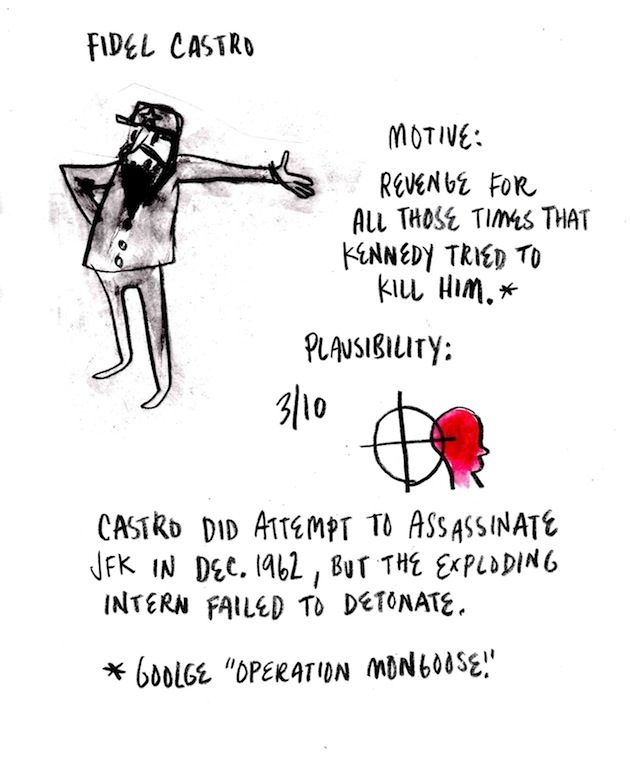 FIDEL CASTRO
MOTIVE:
REVENGE FOR
ALL THOSE TIMES THAT
KENNEDY TRIED TO
KILL HIM.*
PLAUSIBILITY:
3/10
CASTRO DID ATTEMPT TO ASSASSINATE
JFK IN DEC. 1962, BUT THE EXPLODING
INTERN FAILED TO DETONATE.
* GOOLGE "OPERATION MONGOOSE!"